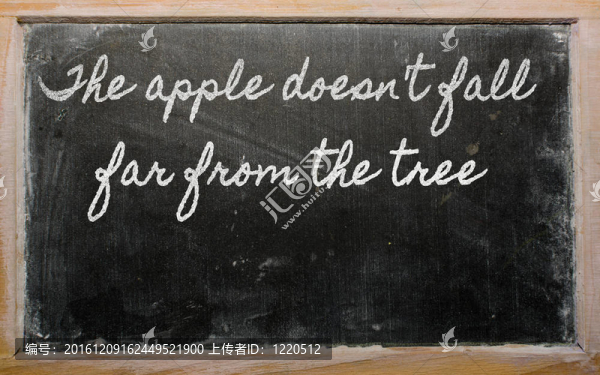 The apple doesn't fall
far from the tree
汇图网
www.huitu.com
编号：20161209162449521900 上传者ID：1220512